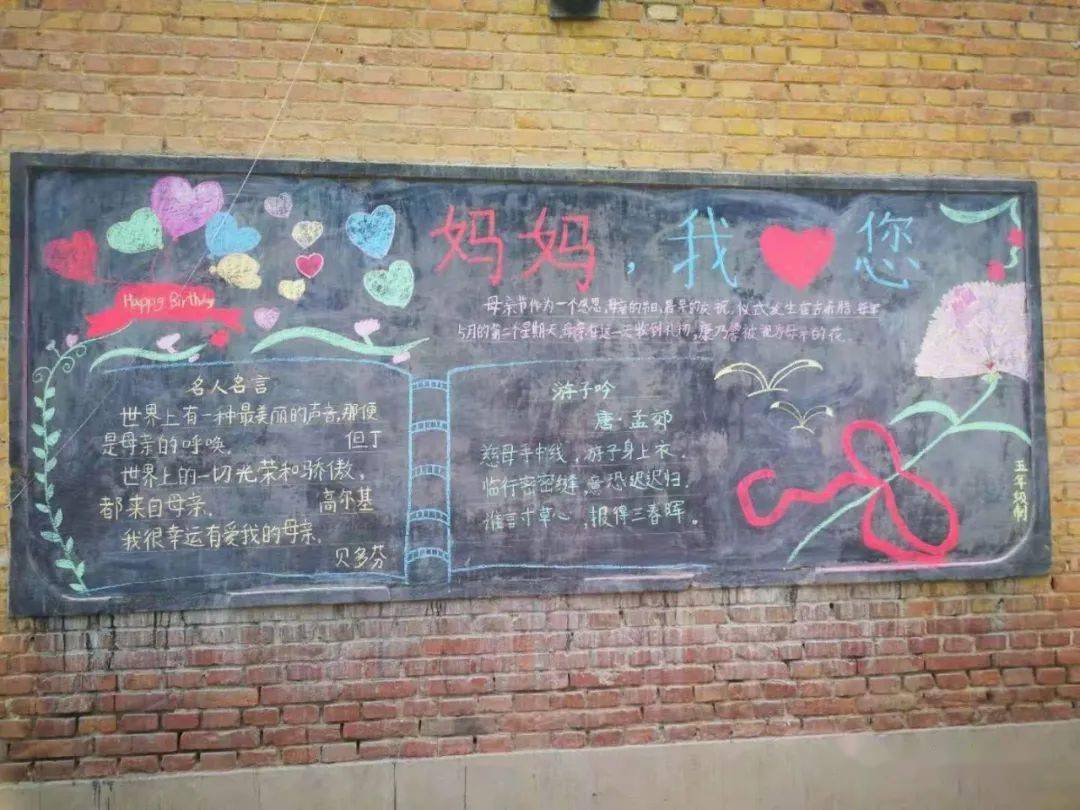 Happy Birthday
妈妈,我 您
母亲节作为一个感恩母亲的节日,最早的庆祝仪式发生在古希腊,每年
5月的第二个星期天,母亲在这一天收到礼物,康乃馨被视为母亲的花
名人名言
世界上有一种最美丽的声音,那便
是母亲的呼唤。 但丁
世界上的一切光荣和骄傲,
都来自母亲。 高尔基
我很幸运有爱我的母亲。
贝多芬
游子吟
唐·孟郊
慈母手中线,游子身上衣。
临行密密缝,意恐迟迟归。
谁言寸草心,报得三春晖。
五年级制